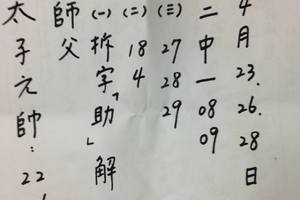 太子元帥:22
師父
(一)拆字「助」解
(二)18 4
(三)27 28 29
二中一 08 09
4月23.26.28日